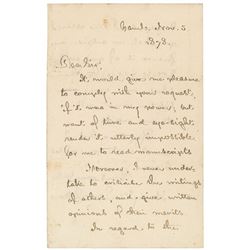 Nov. 5
1878.
Dear Sir,
It would give me pleasure
to comply with your request,
if it was in my power, but
want of time and eye-sight
render it utterly impossible
for me to read manuscripts
Moreover, I never under-
take to criticise the writings
of others, and give written
opinions of their merits
In regard to the